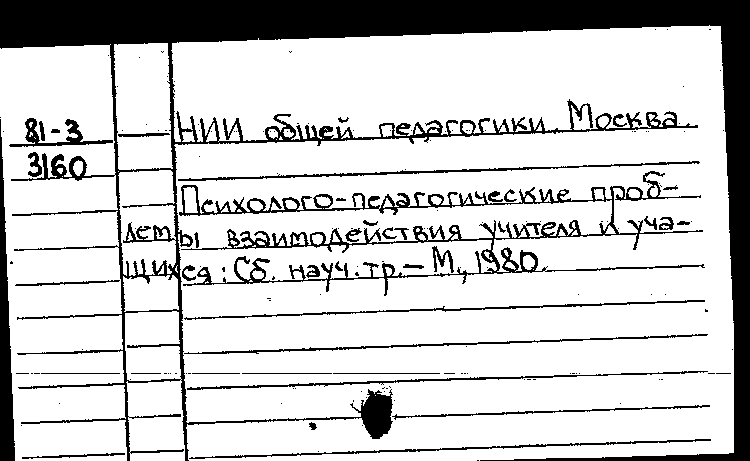 81-3 НИИ общей педагогики. Москва.
3160
Психолого-педагогические проб-
лемы взаимодействия учителя и уча-
щихся: Сб. науч. тр. – М., 1980.